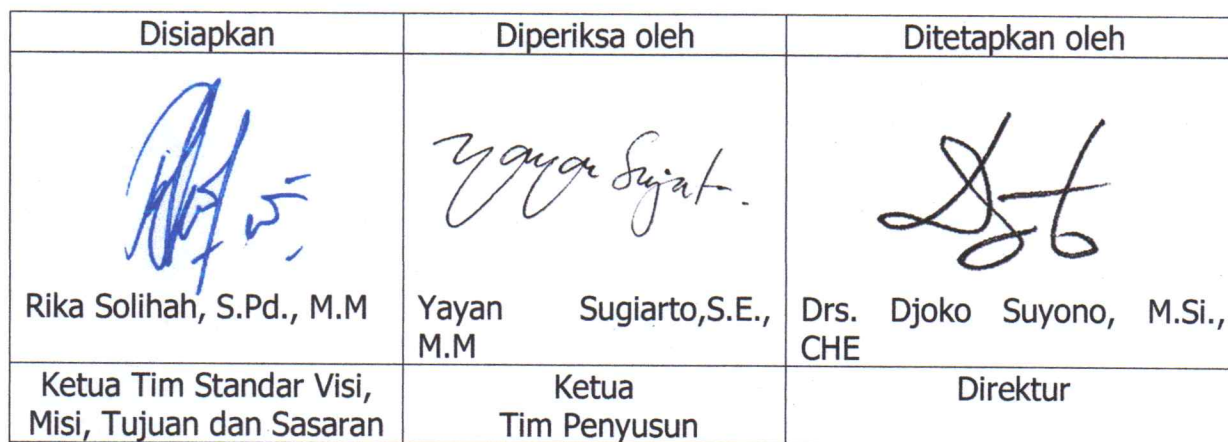 Disiapkan
Diperiksa oleh
Ditetapkan oleh
Rika Solihah, S.Pd., M.M
Yayan Sugiarto,S.E.,
M.M
Drs. Djoko Suyono, M.Si.,
CHE
Ketua Tim Standar Visi,
Misi, Tujuan dan Sasaran
Ketua
Tim Penyusun
Direktur